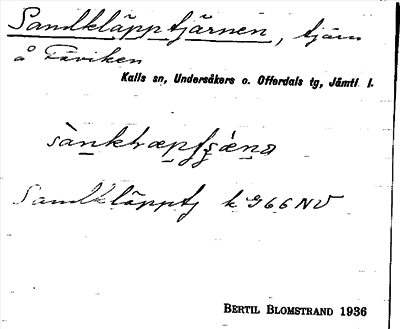 Sandkläpptjärnen, tjärn
å Täviken
Kalls sn, Undersåkers o. Offerdals tg, Jämtl. l.
Sandkläpptj k 966 NV
BERTIL BLOMSTRAND 1936